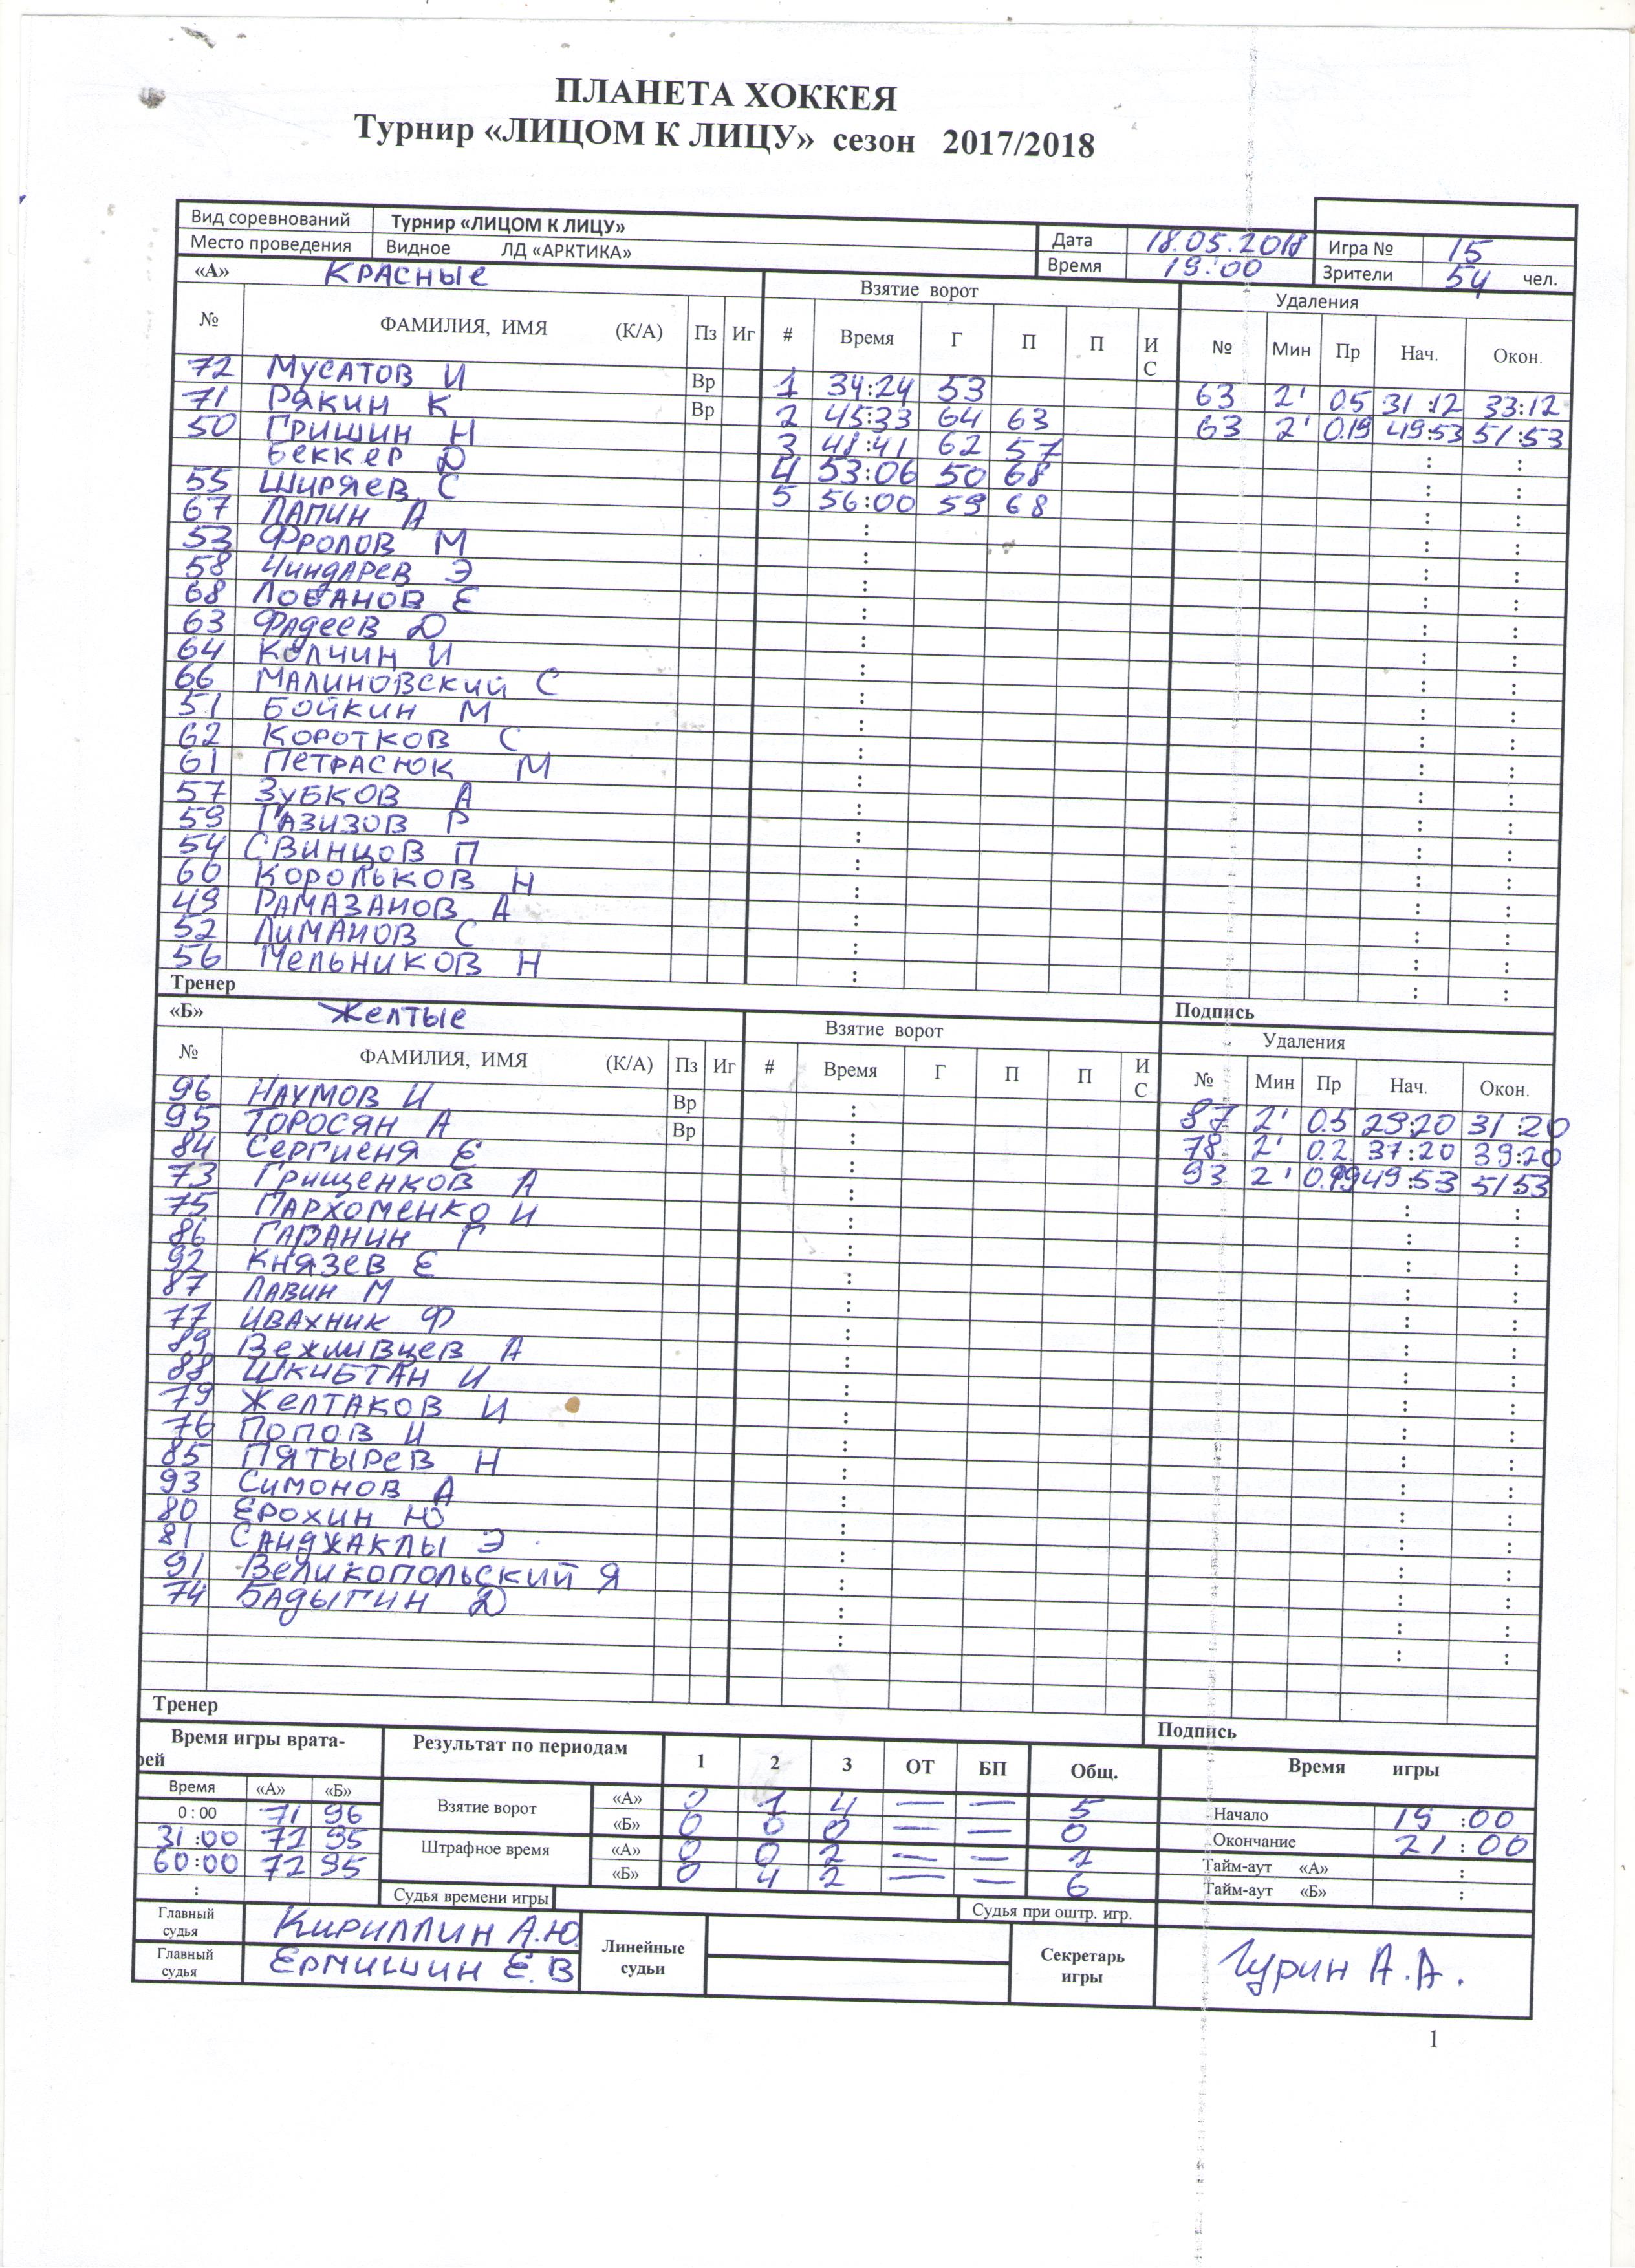 ПЛАНЕТА ХОККЕЯ
Турнир «ЛИЦОМ К ЛИЦУ» сезон 2017/2018
Вид соревнований Турнир «ЛИЦОМ К ЛИЦУ» Дата 18.05.2018 Игра № 15
Место проведения Видное ЛД «АРКТИКА» Время 19:00 Зрители 54 чел.
«А» Красные Взятие ворот Удаления
№ ФАМИЛИЯ, ИМЯ (К/А) Пз Иг # Время Г П П И С № Мин Пр Нач. Окон.
72 Мусатов И Вр 1 34:24 53 63 2' 0.5 31:12 33:12
71 Рякин К Вр 2 45:33 64 63 63 2' 0.19 49:53 51:53
50 Гришин Н 3 48:41 62 57 : :
Беккер D 4 53:06 50 68 : :
55 Ширяев С 5 56:00 59 68 : :
67 Лапин А : : :
53 Фролов М : : :
58 Чиндарев Э : : :
68 Лобанов Е : : :
63 Фадеев D : : :
64 Колчин И : : :
66 Малиновский С : : :
51 Бойкин М : : :
62 Коротков С : : :
61 Петрасюк М : : :
57 Зубков А : : :
59 Газизов Р : : :
54 Свинцов П : : :
60 Корольков Н : : :
49 Рамазанов А : : :
52 Лиманов С : : :
56 Мельников Н : : :
Тренер Подпись
«Б» Желтые Взятие ворот Удаления
№ ФАМИЛИЯ, ИМЯ (К/А) Пз Иг # Время Г П П И С № Мин Пр Нач. Окон.
96 Наумов И Вр : 87 2' 0.5 29:20 31 20
95 Торосян А Вр : 78 2' 0.2 37:20 39:20
84 Сергиеня Е : 93 2' 49:53 51 53
73 Грищенков А : : :
75 Пархоменко И : : :
86 Гаванин Г : : :
92 Князев Е : : :
87 Лавин М : : :
77 Ивахник Ф : : :
89 Вежливцев А : : :
88 Шкибтан И : : :
79 Желтаков И : : :
76 Попов И : : :
85 Пятырев Н : : :
93 Симонов А : : :
80 Ерохин Ю : : :
81 Санджаклы Э : : :
91 Великопольский Я : : :
74 Бадыгин D : : :
: : :
Тренер Подпись
Время игры врата-рей Результат по периодам 1 2 3 ОТ БП Общ. Время игры
Время «А» «Б» Взятие ворот «А» 0 1 4 — — 5 Начало 19:00
0:00 71 96 «Б» 0 0 0 — — 0 Окончание 21:00
31:00 72 95 Штрафное время «А» 0 0 2 — — 2 Тайм-аут «А» :
60:00 72 95 «Б» 0 4 2 — — 6 Тайм-аут «Б» :
: Судья времени игры Судья при оштр. игр.
Главный судья Кириллин А.Ю. Линейные судьи Секретарь игры Гурин А.А.
Главный судья Ермишин Е.В
1